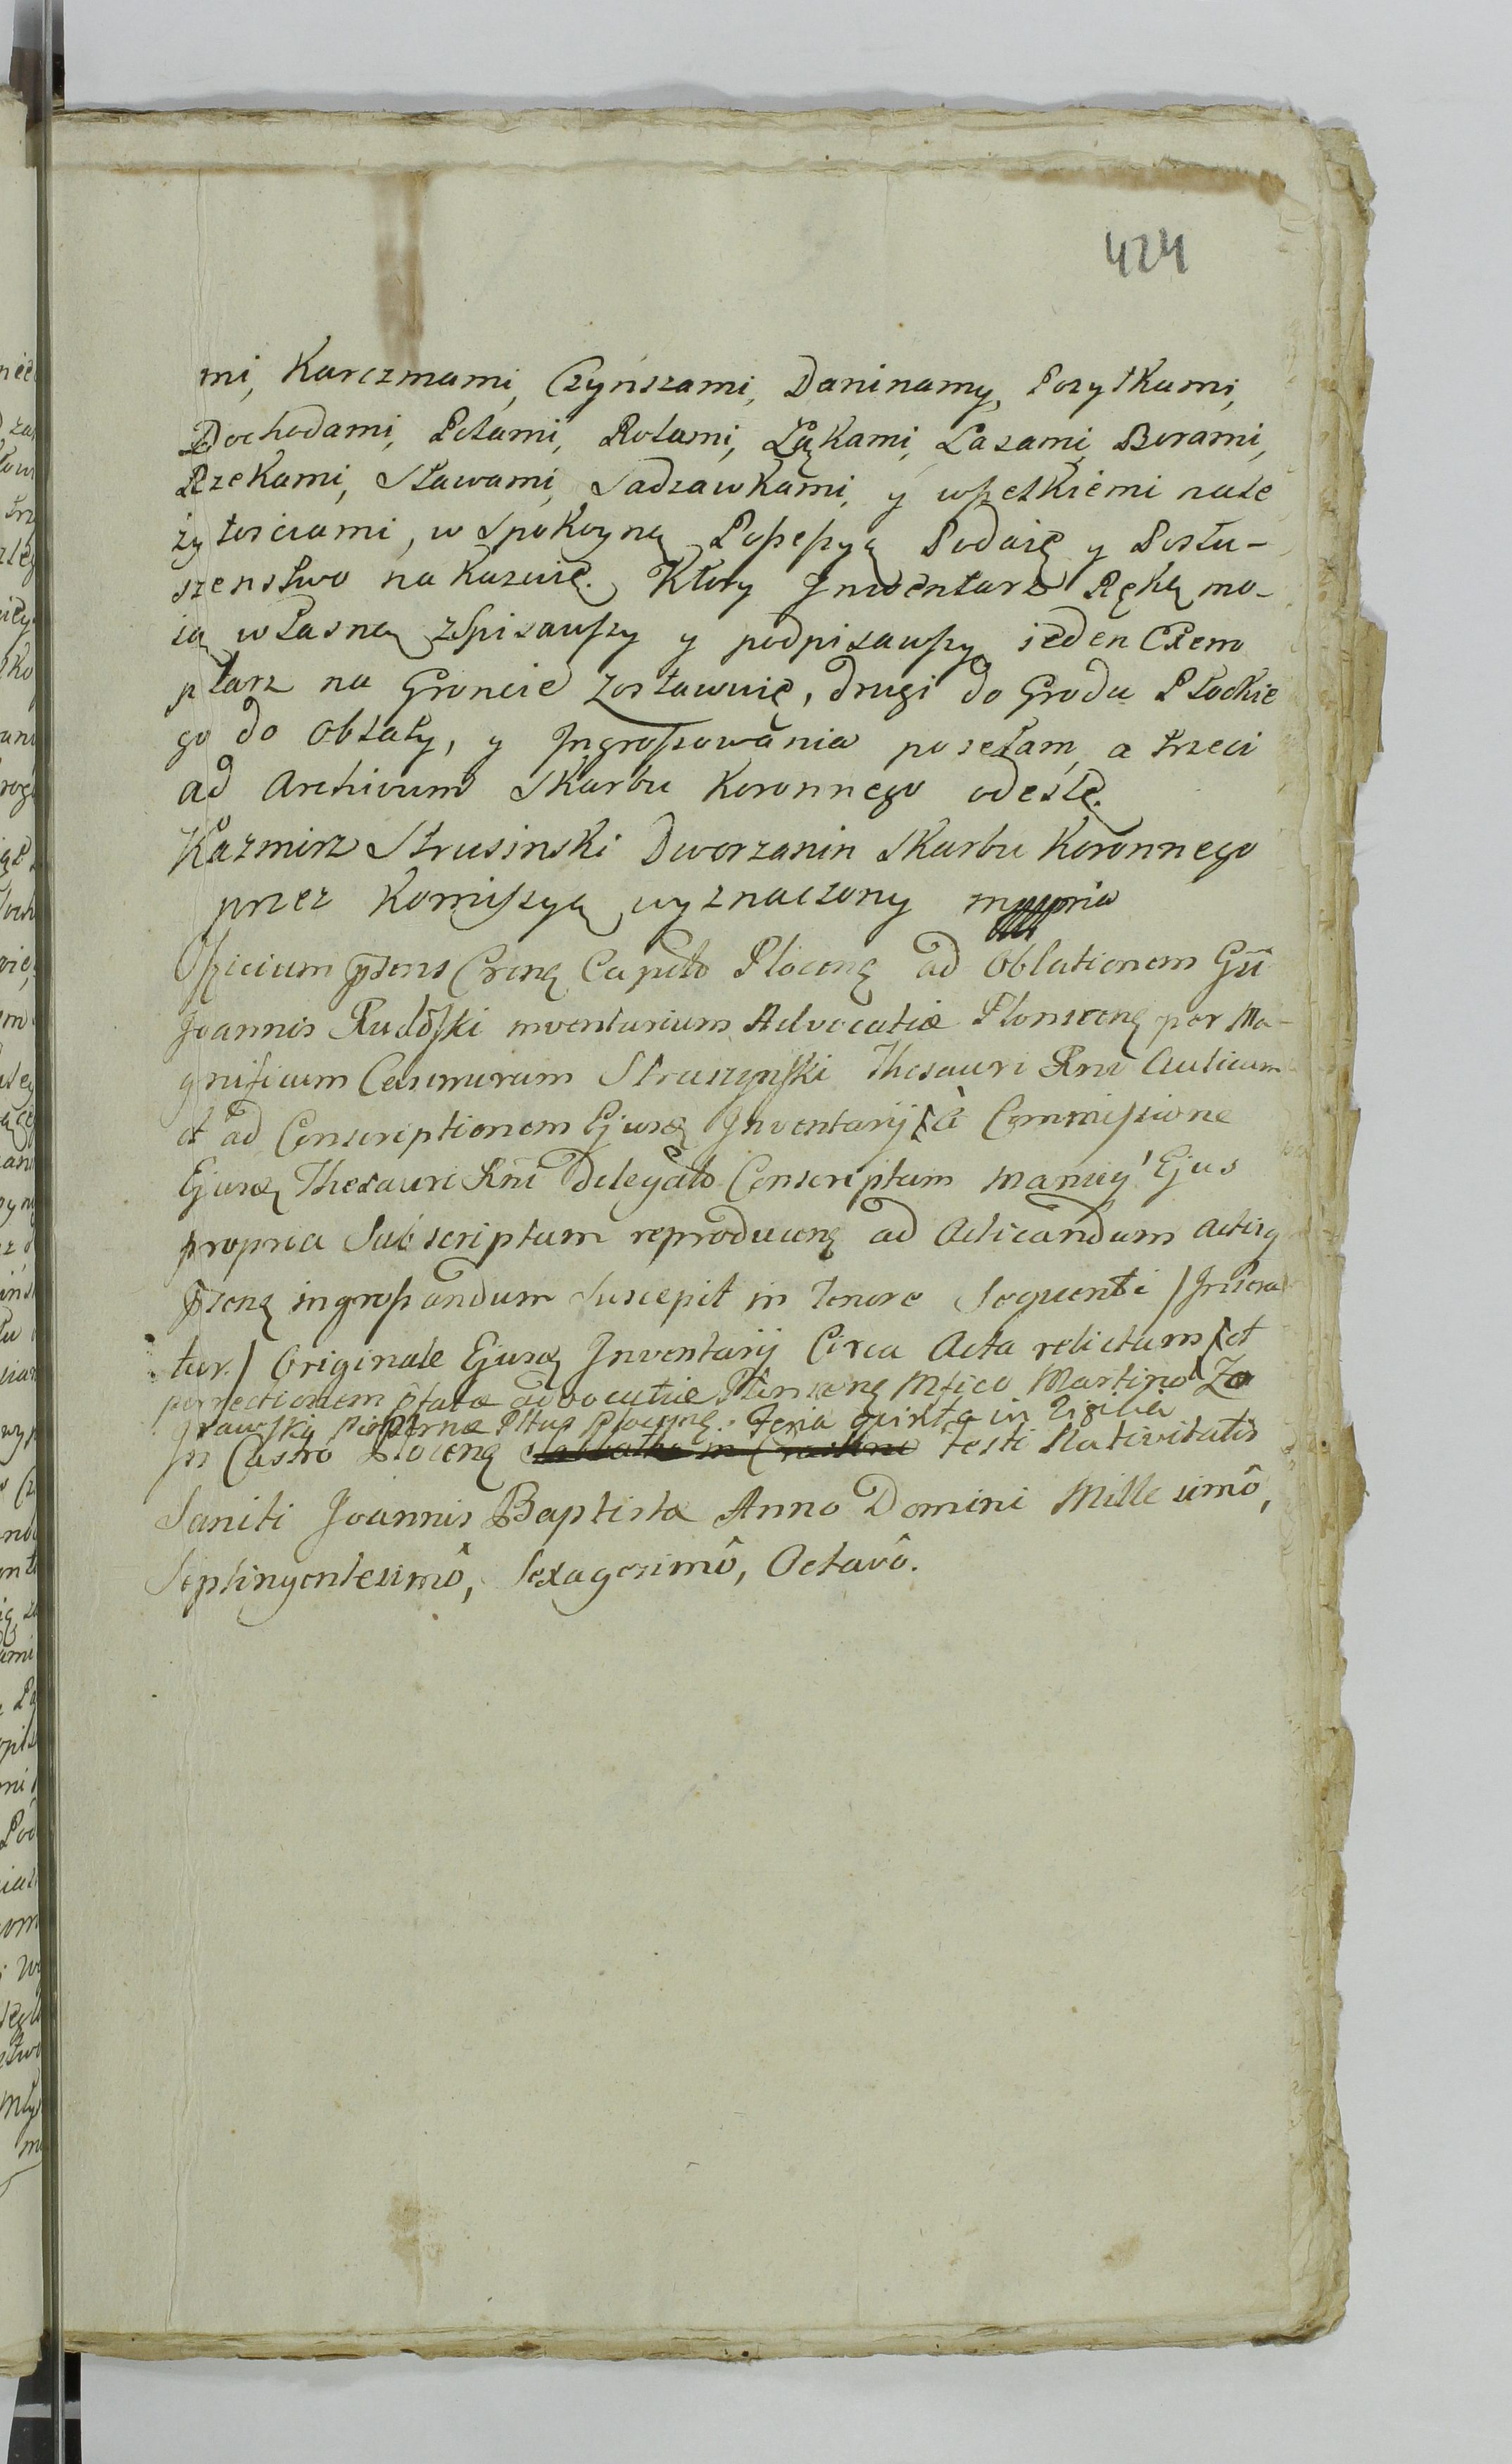 424
mi, Karczmami, Czynszami, Daninamy, Pozytkami,
Dochodami, Polami, Rolami, Łąkami, Lasami, Borami,
Rzekami, Stawami, Sadzawkami, y wszelkiemi nale
zytosciami, w Spokoyną Possessyą Podaię y Posłu-
szenstwo nakazuię. Ktory Inwentarz Ręką mo-
ią własną zspisawszy y podpisawszy ieden Exem
plarz na Groncie zostawuię, drugi do Grodu Płockie
go do Oblaty, y Ingrossowania posełam, a trzeci
ad Archivum Skarbu Koronnego odeslę.
Kazmirz Strusinski Dworzanin Skarbu Koronnego
przez Komissyą wyznaczony mppria
Officium psens Crense Capitle Plocense ad Oblationem Gsi
Joannis Rudolski inventarium Advocatiæ Plonscense per Ma-
gnificum Casimirum Struszynski Thesauri Rni Aulicum
et ad Conscriptionem Ejusd Inventarij à Commissione
Ejusd Thesauri Rni Delegato Conscriptum manuq' Ejus
propria Subscriptum reproducens ad Acticandum actisq
psens ingrossandum suscepit in tenore Sequenti / Insera
tur. / Originale Ejusd Inventarij Circa Acta relictum / et
ptatæ advocatiæ Mfico Martino Za
Feria quinta in Vigilia
In Castro Plocense Sabbatho in Crastino Festi Nativitatis
Sancti Joannis Baptistæ Anno Domini Millesimô,
Septingentesimô, Sexagesimô, Octavô.